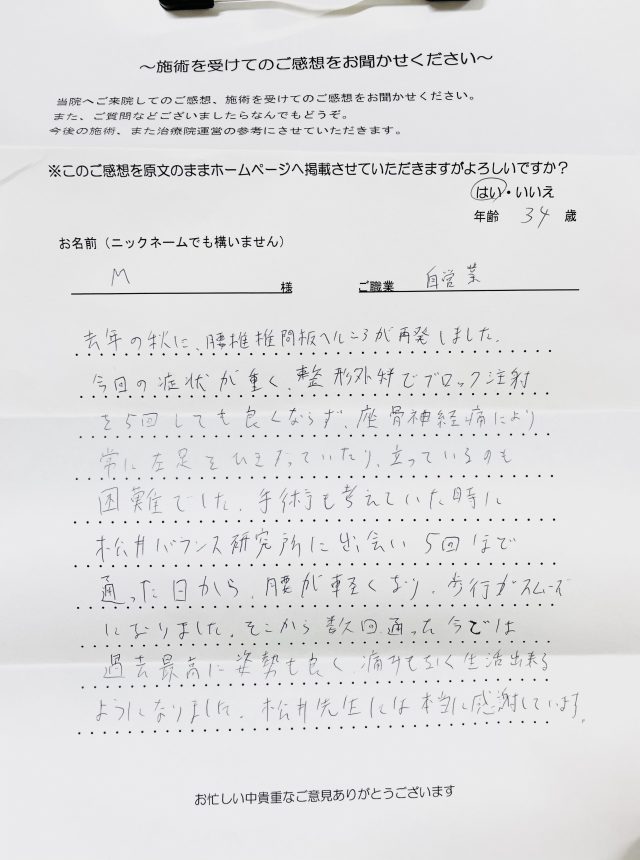 ～施術を受けてのご感想をお聞かせください～
当院へご来院してのご感想、施術を受けてのご感想をお聞かせください。
また、ご質問などございましたらなんでもどうぞ。
今後の施術、また治療院運営の参考にさせていただきます。
※このご感想を原文のままホームページへ掲載させていただきますがよろしいですか？
はい・いいえ
年齢 34 歳
お名前（ニックネームでも構いません）
M 様 ご職業 自営業
去年の秋に、腰椎椎間板ヘルニアが再発しました。
今回の症状が重く、整形外科でブロック注射
を5回しても良くならず、座骨神経痛により
常に左足をひきずっていたり、立っているのも
困難でした。手術も考えていた時に
松井バランス研究所に出会い 5回ほど
通った日から、腰が軽くなり、歩行がスムーズ
になりました。そこから数回通った今では
過去最高に姿勢も良く、痛みもなく生活出来る
ようになりました。松井先生には本当に感謝しています。
お忙しい中貴重なご意見ありがとうございます